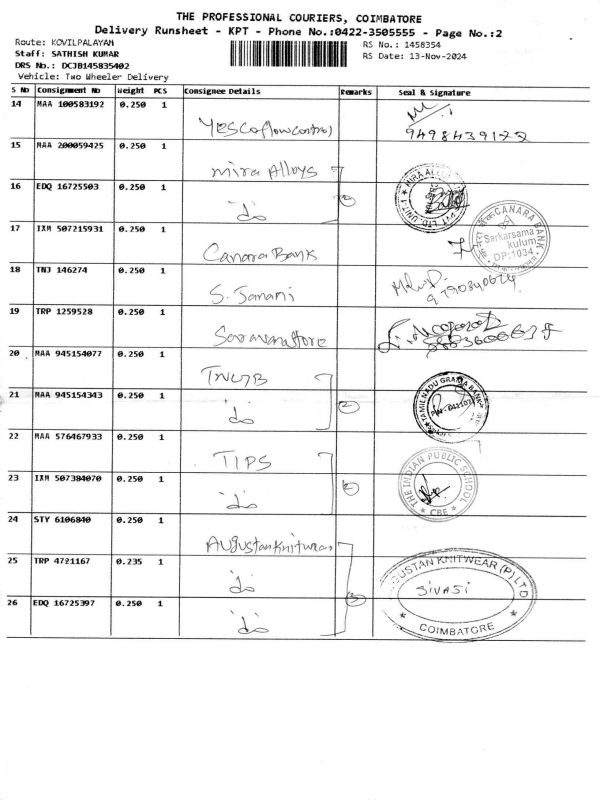 THE PROFESSIONAL COURIERS, COIMBATORE
Delivery Runsheet - KPT - Phone No.:0422-3505555 - Page No.:2
Route: KOVILPALAYAM
RS No.: 1458354
Staff: SATHISH KUMAR
RS Date: 13-Nov-2024
DRS No.: DCJB145835402
Vehicle: Two Wheeler Delivery
S No Consignment No Weight PCS Consignee Details Remarks Seal & Signature
14 MAA 100583192 0.250 1
15 MAA 200059425 0.250 1 Mira Alloys
16 EDQ 16725503 0.250 1 do
17 IXM 507215931 0.250 1 Canara Bank CANARA BANK Sarkarsama kulum DP:1034
18 TNJ 146274 0.250 1 S. Janani
19 TRP 1259528 0.250 1 Saravanastore
20 MAA 945154077 0.250 1 TNGB
21 MAA 945154343 0.250 1 do 2 TAMIL NADU GRAMA BANK
22 MAA 576467933 0.250 1 TIPS
23 IXM 507384070 0.250 1 do 2 THE INDIAN PUBLIC SCHOOL CBE
24 STY 6106840 0.250 1 Augustan Knitwear
25 TRP 4721167 0.235 1 do GUSTAN KNITWEAR (P) LTD SIVASI COIMBATORE
26 EDQ 16725397 0.250 1 do 3